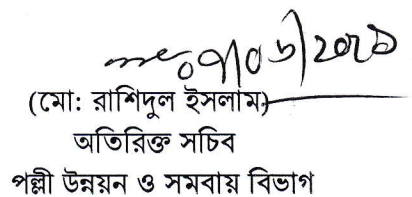 ০৭/০৬/২০২১
(মো: রাশিদুল ইসলাম)
অতিরিক্ত সচিব
পল্লী উন্নয়ন ও সমবায় বিভাগ